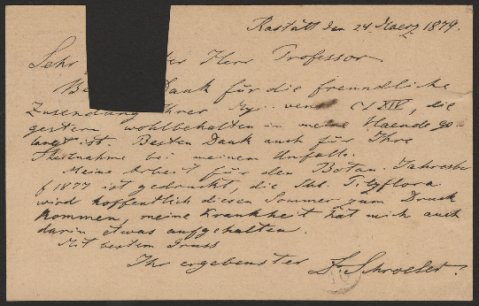 Rastatt den 24 Maerz 1879.
Sehr Herr Professor
Be Dank für die freundliche
Zusendung Ihrer CXIV, die
gestern wohlbehalten in meine Haende ge
langt ist. Besten Dank auch für Ihre
Theilnahme bei meinem Unfalle.
Meine Arbeit für den Botan. Jahresber
f 1877 ist gedruckt, die Pilzflora
wird hoffentlich diesen Sommer zum Druck
kommen, meine Krankheit hat mich auch
darin etwas aufgehalten.
Mit bestem Gruss
Ihr ergebenster Dr Schroeter.